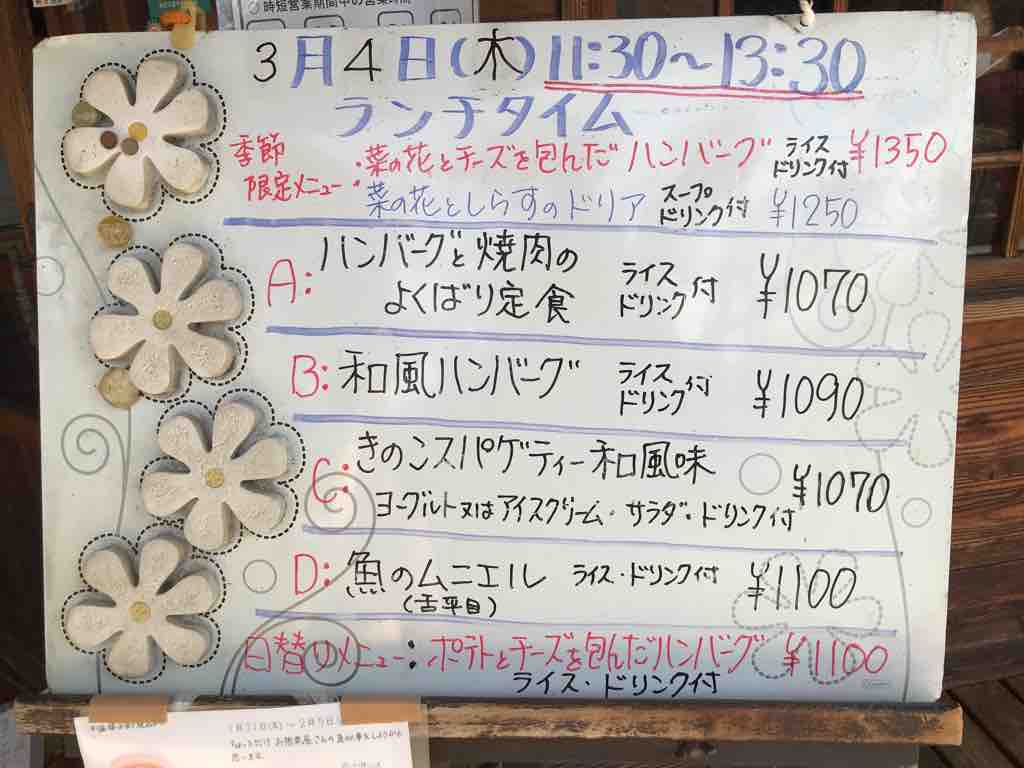 時短営業期間中の営業時間
3月4日(木) 11:30～13:30
ランチタイム
季節限定メニュー
・菜の花とチーズを包んだハンバーグ ライス ドリンク付 ¥1350
・菜の花としらすのドリア スープ ドリンク付 ¥1250
A: ハンバーグと焼肉の
よくばり定食 ライス ドリンク付 ¥1070
B: 和風ハンバーグ ライス ドリンク付 ¥1090
C: きのこスパゲティー和風味 ¥1070
ヨーグルト又はアイスクリーム・サラダ・ドリンク付
D: 魚のムニエル ライス・ドリンク付 ¥1100
(舌平目)
日替りメニュー: ポテトとチーズを包んだハンバーグ ¥1100
ライス・ドリンク付